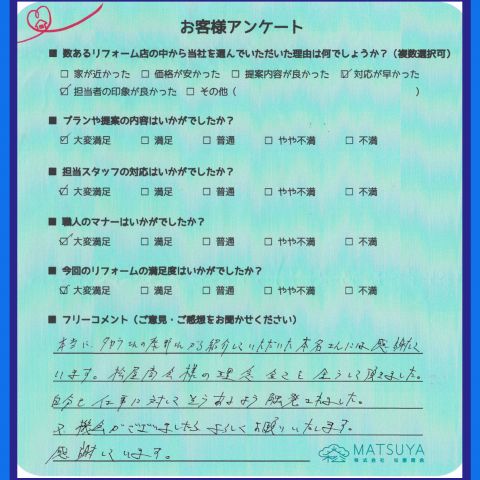 お客様アンケート
■ 数あるリフォーム店の中から当社を選んでいただいた理由は何でしょうか？（複数選択可）
□ 家が近かった □ 価格が安かった □ 提案内容が良かった ☑ 対応が早かった
☑ 担当者の印象が良かった □ その他（ ）
■ プランや提案の内容はいかがでしたか？
☑ 大変満足 □ 満足 □ 普通 □ やや不満 □ 不満
■ 担当スタッフの対応はいかがでしたか？
☑ 大変満足 □ 満足 □ 普通 □ やや不満 □ 不満
■ 職人のマナーはいかがでしたか？
☑ 大変満足 □ 満足 □ 普通 □ やや不満 □ 不満
■ 今回のリフォームの満足度はいかがでしたか？
☑ 大変満足 □ 満足 □ 普通 □ やや不満 □ 不満
■ フリーコメント（ご意見・ご感想をお聞かせください）
本当に、 紹介していただいた 感謝して
います。松屋商会様の理念
自分も仕事に対して
又、機会がございましたらよろしくお願いいたします。
感謝しています。
MATSUYA
株式会社 松屋商会